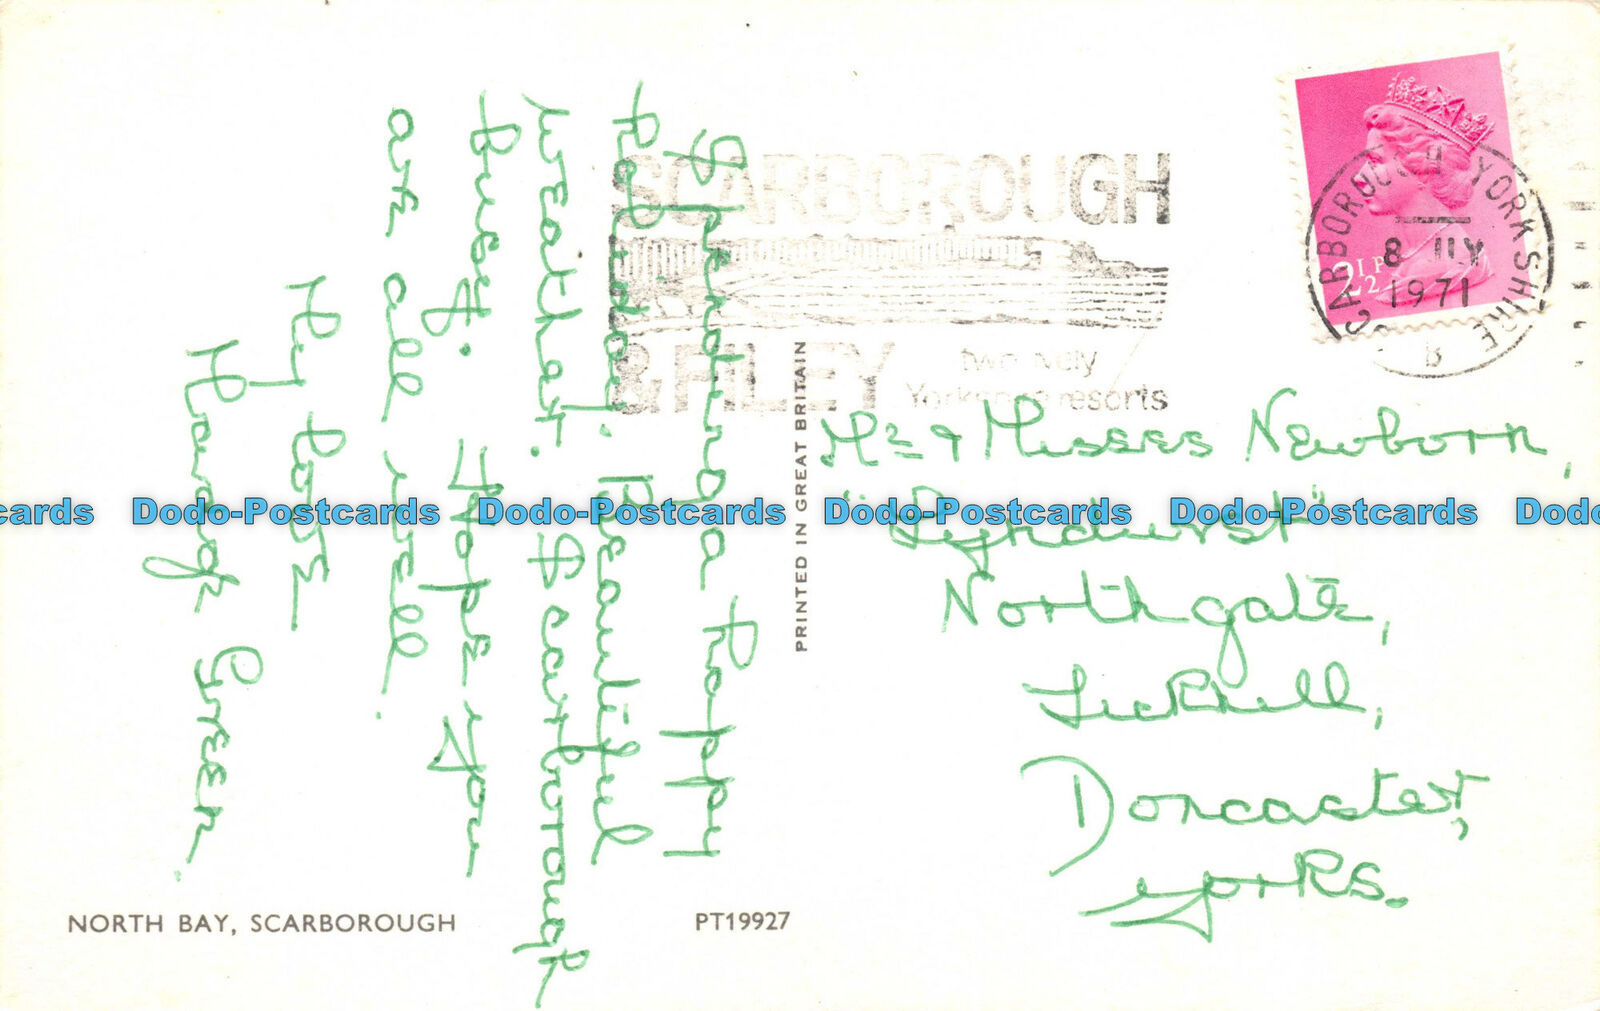 Spending a happy
holiday. Beautiful
weather. Scarborough
Busy. Hope you
are all well.
My love
Green.
SCARBOROUGH
& FILEY
two lovely
Yorkshire resorts
SCARBOROUGH YORKSHIRE
8 JLY
1971
B
2½P
PRINTED IN GREAT BRITAIN
Mr & Misses Newborn,
"Lyndhurst"
Northgate,
Tickhill,
Doncaster,
Yorks.
Dodo-Postcards Dodo-Postcards Dodo-Postcards Dodo-Postcards Dodo-Postcards
NORTH BAY, SCARBOROUGH
PT19927